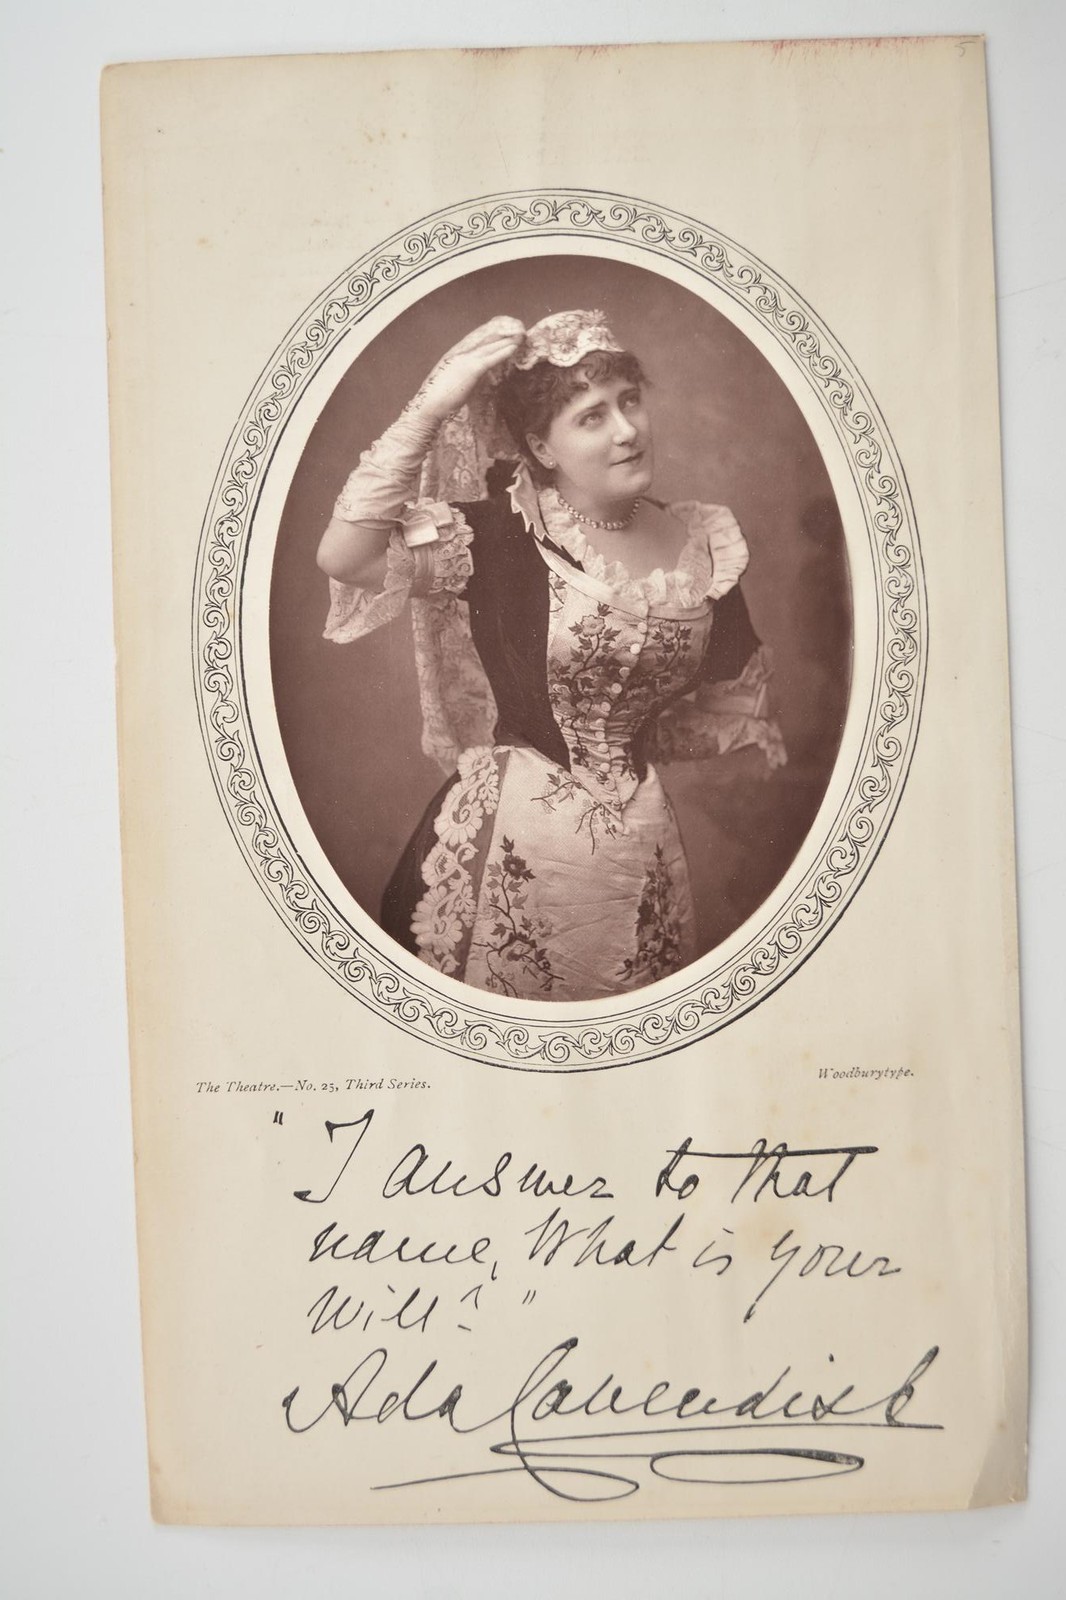 5
The Theatre.—No. 25, Third Series.
Woodburytype.
"I answer to that
name, What is your
Will?"
Ada Cavendish